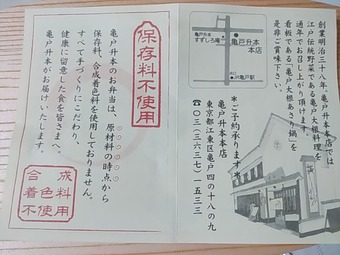 創業明治三十八年。亀戸升本本店では
江戸伝統野菜である亀戸大根料理を
通年でお召し上がり頂けます。
看板である「亀戸大根あさり鍋」を
是非ご賞味下さい。
亀戸升本
すずしろ庵
亀戸升本
本店
JR亀戸駅
*ご予約承ります*
亀戸升本本店
東京都江東区亀戸四の十八の九
☎〇三(三六三七)一五三三
保存料不使用
亀戸升本のお弁当は、原材料の時点から
保存料、合成着色料を使用しておりません。
すべて手づくりにこだわり、
健康に留意した食を皆さまへ。
亀戸升本がお届けいたします。
合成
着色料
不使用